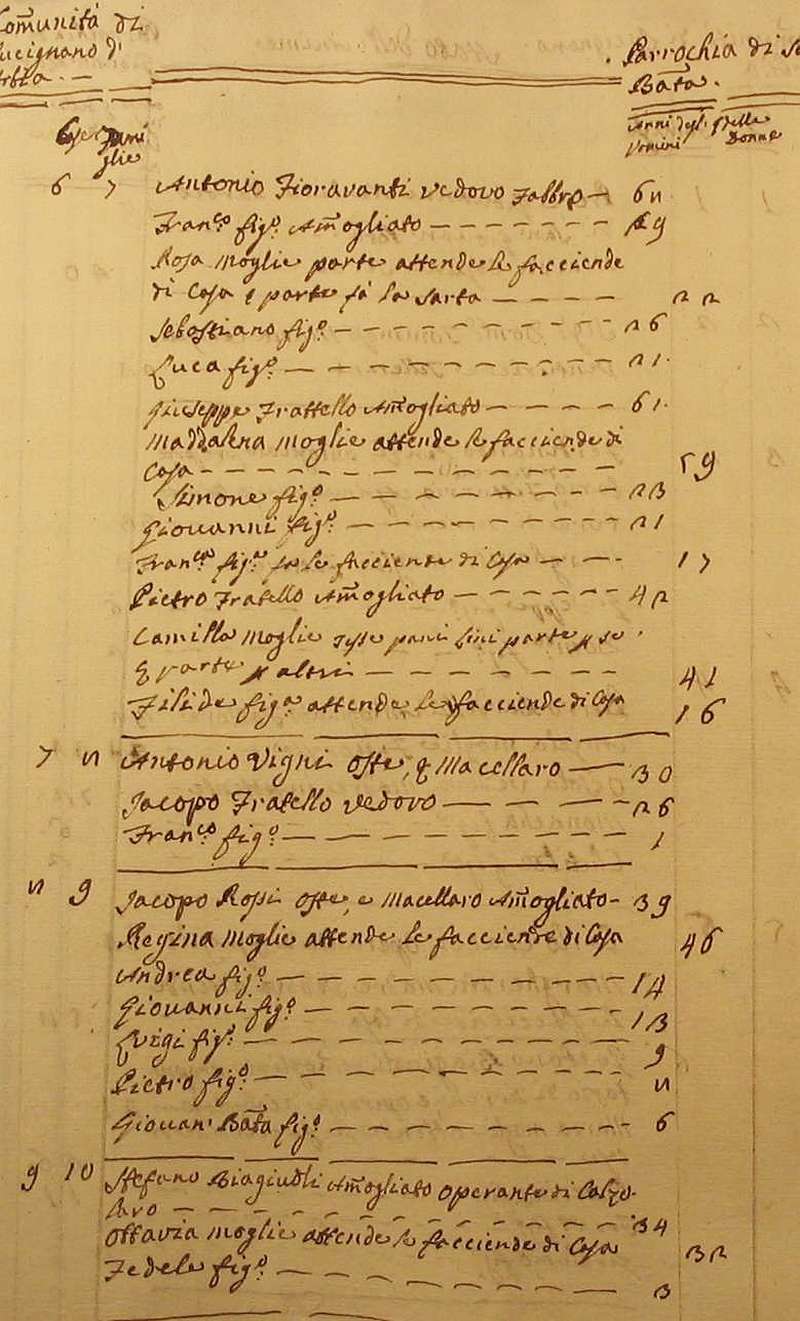 Com̃unità di
Lucignano d'
Arbia.
Parrochia di S.
Bat̃a.
Case Fami
glie
Anni degl. Uomini
Delle Donne
6 7 Antonio Fioravanti Vedovo Fabbro — 68
Fran.co fig.o Am̃ogliato — 29
Rosa Moglie parte attende le facciende
di Casa e parte fà la Sarta — 22
Sebastiano fig.o — 26
Luca fig.o — 21
Giuseppe Frattello Am̃ogliato — 61
Madalena Moglie attende le facciende di
Casa — 59
Simone fig.o — 23
Giovanni fig.o — 21
Fran.ca fig.a fa le facciende di Casa — 17
Pietro Fratello Am̃ogliato — 42
Camilla Moglie tesse pani lini parte p se
e parte p altri — 41
Filide fig.a attende le facciende di Casa 16
7 8 Antonio Vigni Oste, e Macellaro — 30
Jacopo Fratello Vedovo — 26
Fran.co fig.o — 1
8 9 Jacopo Rossi Oste, e Macellaro Am̃ogliato - 39
Regina Moglie attende le facciende di Casa 46
Andrea fig.o — 14
Giovanni fig.o — 13
Luigi fig.o — 9
Pietro fig.o — 8
Giovan' Bat̃a fig.o — 6
9 10 Stefano Biagiotti Am̃ogliato Operante di Calzo-
laro — 34
Ottavia Moglie attende le facciende di Casa 32
Fedele fig.o — 3